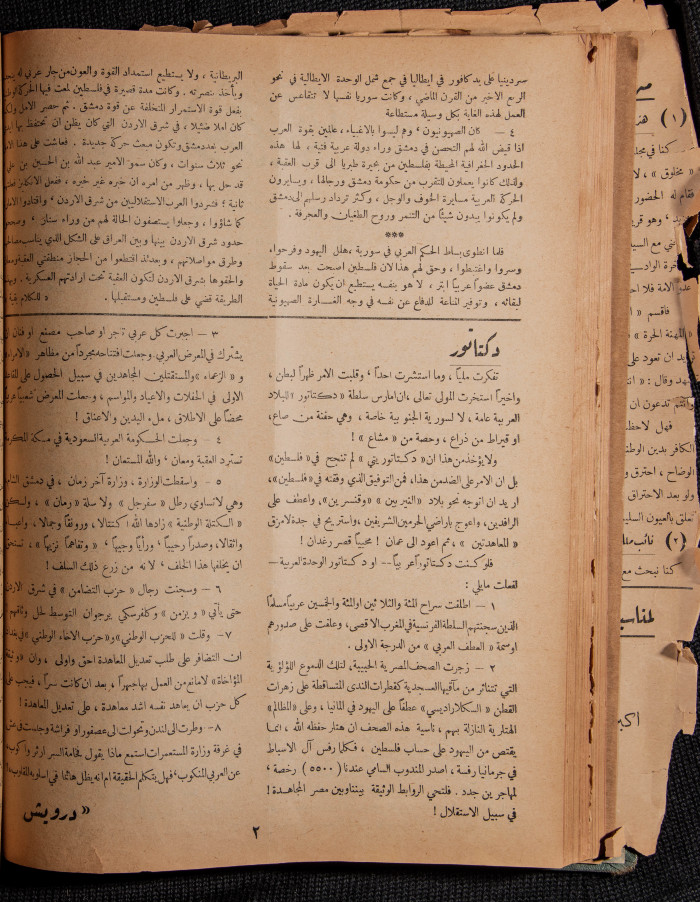 سردينيا على يد كافور في ايطاليا في جمع شمل الوحدة الايطالية في نحو
الربع الاخير من القرن الماضي ، وكانت سوريا نفسها لا تتقاعس عن
العمل لهذه الغاية بكل وسيلة مستطاعة
٤ — كان الصهيونيون ، وهم ليسوا بالاغبياء ، عالمين بقوة العرب
اذا قيض الله لهم التحصن في دمشق وراء دولة عربية فتية ، لها هذه
الحدود الجغرافية المحيطة بفلسطين من بحيرة طبريا الى قرب العقبة ،
ولذلك كانوا يعملون للتقرب من حكومة دمشق ورجالها ، ويسايرون
الحركة العربية مسايرة الخوف والوجل ، وكثر ترداد رسلهم الى دمشق
ولم يكونوا يبدون شيئاً من التنمر وروح الطغيان والعجرفة .
***
فلما انطوى بساط الحكم العربي في سورية ، هلل اليهود وفرحوا ،
وسروا واغتبطوا ، وحق لهم هذا لان فلسطين اصبحت بعد سقوط
دمشق عضواً عربياً ابتر ، لا هو بنفسه يستطيع ان يكون مادة الحياة
لبقائه ، وتوفير المناعة للدفاع عن نفسه في وجه الغارة الصهيونية
البريطانية ، ولا يستطيع استمداد القوة والعون من جار عربي له
ويأخذ بنصرته . وكانت مدة قصيرة في فلسطين لمعت فيها الحركة
بفعل قوة الاستمرار المتخلفة عن قوة دمشق . ثم حصر الامل
كان املا ضئيلا ، في شرق الاردن التي كان يظن ان تحتفظ بها
العرب بعد دمشق وتكون مبعث حركة جديدة . فعاشت على هذا
نحو ثلاث سنوات ، وكان سمو الامير عبد الله بن الحسين بن علي
قد حل بها ، وظهر من امره ان خبره غير خبره ، ففعل الانكليز
ثانية ؛ فشردوا العرب الاستقلاليين من شرق الاردن ، واقتادوا
كما شاؤوا ، وجعلوا يستصفون الحالة لهم من وراء ستار .
حدود شرق الاردن بينها وبين العراق على الشكل الذي يناسب
وطرق مواصلاتهم ، وبعدئذ اقتطعوا من الحجاز منطقتي العقبة
والحقوها بشرق الاردن لتكون العقبة تحت ارادتهم العسكرية .
الطريقة قضي على فلسطين ومستقبلها . « للكلام بقية
دكتاتور
تفكرت ملياً ، وما استشرت احداً ، وقلبت الامر ظهراً لبطن ،
واخيراً استخرت المولى تعالى ، ان امارس سلطة « دكتاتور » البلاد
العربية عامة ، لا لسورية الجنوبية خاصة ، وهي حفنة من صاع ،
او قيراط من ذراع ، وحصة من « مشاع » !
ولا يؤخذ من هذا ان « دكتاتوريتي » لم تنجح في « فلسطين »
بل ان الامر على الضد من هذا ، فمن التوفيق الذي وفقته في « فلسطين » ،
اريد ان اتوجه نحو بلاد « النيربين » « وقنسرين » ، واعطف على
الرافدين ، واعوج باراضي الحرمين الشريفين ، واستريح في جدة لامزق
« المعاهدتين » ، ثم اعود الى عمان ! محيياً قصر رغدان !
فلو كنت دكتاتوراً عربياً — او دكتاتور الوحدة العربية —
لفعلت مايلي :
١ — اطلقت سراح المئة والثلاثين او المئة والخمسين عربياً مسلماً
الذين سجنتهم السلطة الفرنسية في المغرب الاقصى ، وعلقت على صدورهم
اوسمة « العطف العربي » من الدرجة الاولى .
٢ — زجرت الصحف المصرية الحبيبة ، لتلك الدموع اللؤلؤية
التي تتناثر من مآقيها العسجدية كقطرات الندى المتساقطة على زهرات
القطن « السكلاريديس » عطفاً على اليهود في المانيا ، وعلى « المظالم »
الهتلرية النازلة بهم ، ناسية هذه الصحف ان هتلر حفظه الله ، انما
يقتص من اليهود على حساب فلسطين ، فكلما رفس آل الاسباط
في جرمانيا رفسة ، اصدر المندوب السامي عندنا ( ٥٥٠٠ ) رخصة ،
لمهاجرين جدد . فلتحي الروابط الوثيقة بيننا وبين مصر المجاهدة !
في سبيل الاستقلال !
٣ — اجبرت كل عربي تاجر او صاحب مصنع او فنان
يشترك في المعرض العربي . وجعلت افتتاحه مجرداً من مظاهر
و « الزعماء » والمستقتلين المجاهدين في سبيل الحصول على
الاولى في الحفلات والاعياد والمواسم ، وجعلت المعرض شعبياً
محضاً على الاطلاق ، ملء اليدين والاعناق !
٤ — وجعلت الحكومة العربية السعودية في مكة المكرمة
تسترد العقبة ومعان ، والله المستعان !
٥ — واسقطت الوزارة ، وزارة آخر زمان ، في دمشق
وهي لا تساوي رطل « سفرجل » ولا سلة « رمان » ،
« الكتلة الوطنية » زادها الله اكتتالا ، ورونقاً وجمالا ،
واثقالا ، وصدراً رحيباً ، ورأياً وجيهاً ، « وتفاهماً نزيهاً » ،
ان يخلفها هذا الخلف ، لانه من زرع ذلك السلف !
٦ — وسجنت رجال « حزب التضامن » في شرق الاردن
حتى يأتي « ويزمن » وكلفرسكي يرجوان التوسط لحل وثاقهم
٧ — وقلت « للحزب الوطني » و « حزب الاخاء الوطني » في
ان التضافر على طلب تعديل المعاهدة احق واولى ، وان
المؤاخاة » لا مانع من العمل بها جهراً ، بعد ان كانت سراً ، فيجب
كل حزب ان يعاهد نفسه اشد معاهدة ، على تعديل المعاهدة !
٨ — وطرت الى لندن وتحولت الى عصفور او فراشة وجلست
في غرفة وزارة المستعمرات استمع ماذا يقول فخامة السر ارثر
عن العربي المنكوب ، فهل يتكلم الحقيقة ام انه يظل هائماً في اسلوبه
« درويش
٢
(١)
كنا في مجلس
« مخلوق » ،
فقام له الحضور
(٢)
كنا نبحث مع